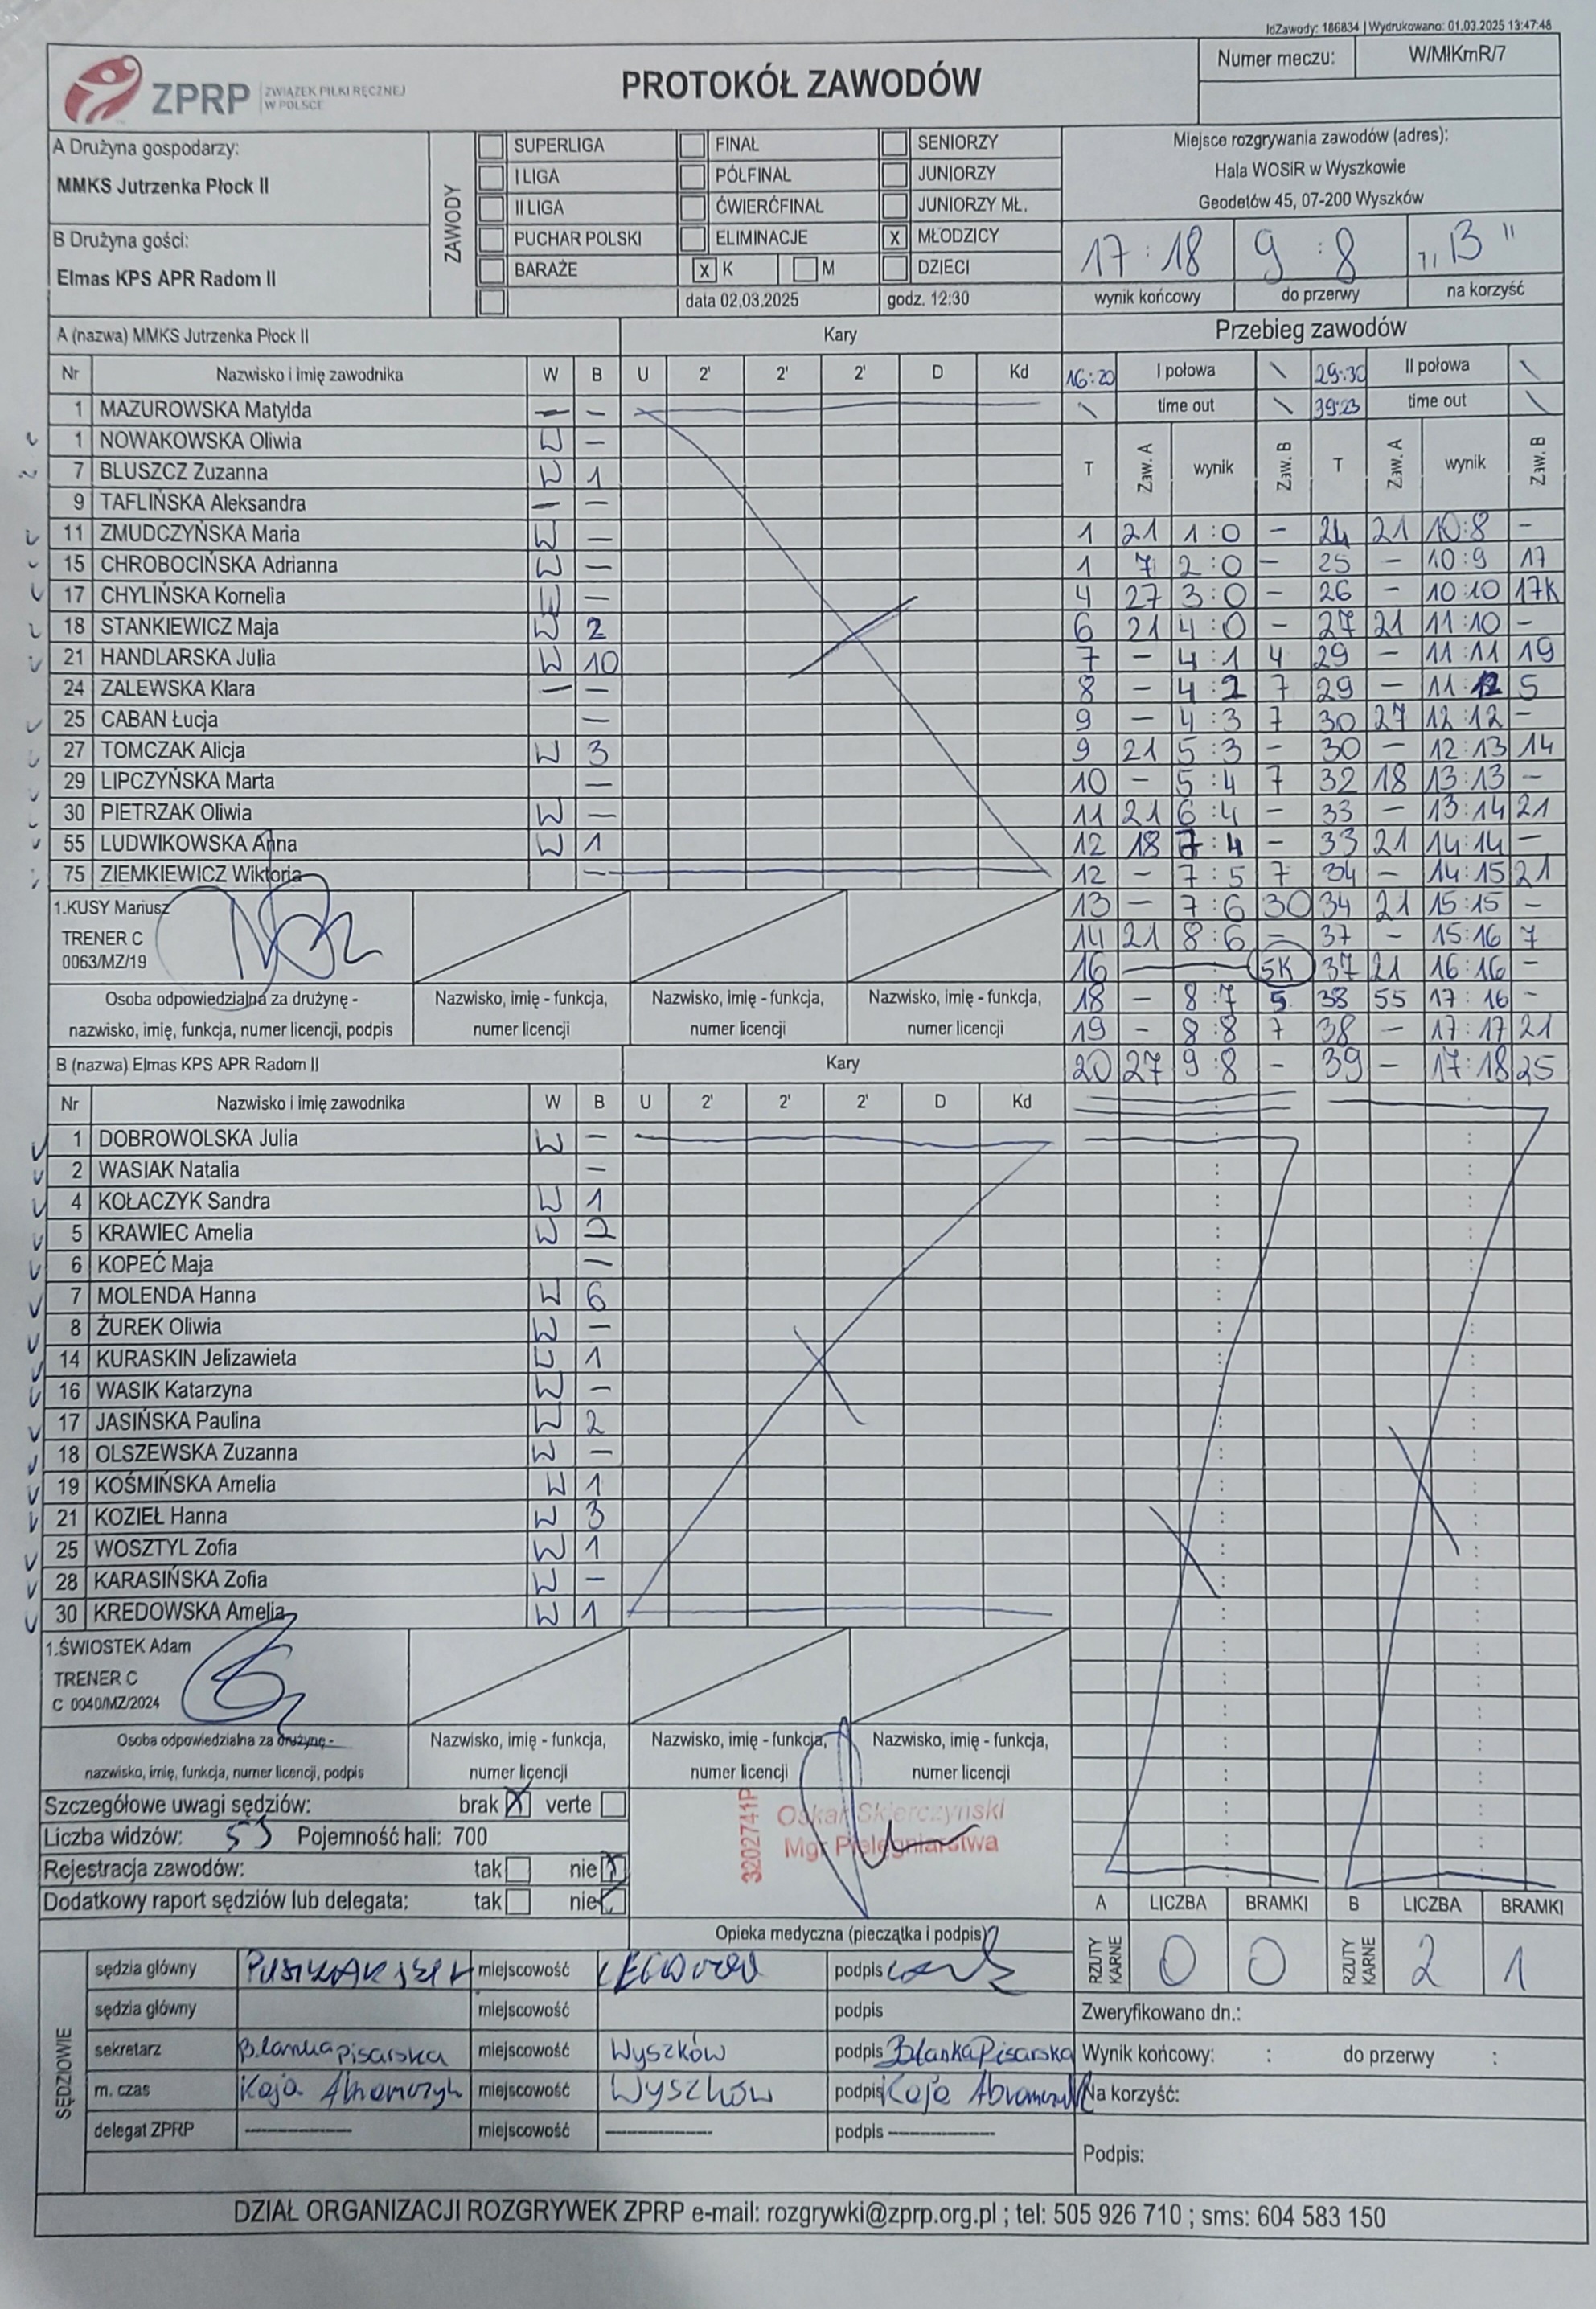 IdZawody: 186834 | Wydrukowano: 01.03.2025 13:47:48
ZPRP ZWIĄZEK PIŁKI RĘCZNEJ W POLSCE
PROTOKÓŁ ZAWODÓW
Numer meczu: W/MłKmR/7
A Drużyna gospodarzy:
MMKS Jutrzenka Płock II
B Drużyna gości:
Elmas KPS APR Radom II
ZAWODY
SUPERLIGA FINAŁ SENIORZY
I LIGA PÓŁFINAŁ JUNIORZY
II LIGA ĆWIERĆFINAŁ JUNIORZY MŁ.
PUCHAR POLSKI ELIMINACJE X MŁODZICY
BARAŻE X K M DZIECI
data 02.03.2025 godz. 12:30
Miejsce rozgrywania zawodów (adres):
Hala WOSiR w Wyszkowie
Geodetów 45, 07-200 Wyszków
17 : 18 9 : 8 „B"
wynik końcowy do przerwy na korzyść
A (nazwa) MMKS Jutrzenka Płock II Kary
Nr Nazwisko i imię zawodnika W B U 2' 2' 2' D Kd
1 MAZUROWSKA Matylda — —
1 NOWAKOWSKA Oliwia W —
7 BLUSZCZ Zuzanna W 1
9 TAFLIŃSKA Aleksandra — —
11 ZMUDCZYŃSKA Maria W —
15 CHROBOCIŃSKA Adrianna W —
17 CHYLIŃSKA Kornelia W —
18 STANKIEWICZ Maja W 2
21 HANDLARSKA Julia W 10
24 ZALEWSKA Klara — —
25 CABAN Łucja —
27 TOMCZAK Alicja W 3
29 LIPCZYŃSKA Marta —
30 PIETRZAK Oliwia W —
55 LUDWIKOWSKA Anna W 1
75 ZIEMKIEWICZ Wiktoria —
1.KUSY Mariusz
TRENER C
0063/MZ/19
Osoba odpowiedzialna za drużynę -
nazwisko, imię, funkcja, numer licencji, podpis
Nazwisko, imię - funkcja,
numer licencji
Nazwisko, imię - funkcja,
numer licencji
Nazwisko, imię - funkcja,
numer licencji
Przebieg zawodów
16:20 I połowa \ 29:30 II połowa \
\ time out \ 39:23 time out \
T Zaw. A wynik Zaw. B T Zaw. A wynik Zaw. B
1 21 1:0 — 24 21 10:8 —
1 7 2:0 — 25 — 10:9 17
4 27 3:0 — 26 — 10:10 17K
6 21 4:0 — 27 21 11:10 —
7 — 4:1 4 29 — 11:11 19
8 — 4:2 7 29 — 11:12 5
9 — 4:3 7 30 27 12:12 —
9 21 5:3 — 30 — 12:13 14
10 — 5:4 7 32 18 13:13 —
11 21 6:4 — 33 — 13:14 21
12 18 7:4 — 33 21 14:14 —
12 — 7:5 7 34 — 14:15 21
13 — 7:6 30 34 21 15:15 —
14 21 8:6 — 37 — 15:16 7
16 — : 5K 37 21 16:16 —
18 — 8:7 5 38 55 17:16 —
19 — 8:8 7 38 — 17:17 21
20 27 9:8 — 39 — 17:18 25
B (nazwa) Elmas KPS APR Radom II Kary
Nr Nazwisko i imię zawodnika W B U 2' 2' 2' D Kd
1 DOBROWOLSKA Julia W —
2 WASIAK Natalia —
4 KOŁACZYK Sandra W 1
5 KRAWIEC Amelia W 2
6 KOPEĆ Maja —
7 MOLENDA Hanna W 6
8 ŻUREK Oliwia W —
14 KURASKIN Jelizawieta W 1
16 WASIK Katarzyna W —
17 JASIŃSKA Paulina W 2
18 OLSZEWSKA Zuzanna W —
19 KOŚMIŃSKA Amelia W 1
21 KOZIEŁ Hanna W 3
25 WOSZTYL Zofia W 1
28 KARASIŃSKA Zofia W —
30 KREDOWSKA Amelia W 1
1.ŚWIOSTEK Adam
TRENER C
C 0040/MZ/2024
Osoba odpowiedzialna za drużynę -
nazwisko, imię, funkcja, numer licencji, podpis
Nazwisko, imię - funkcja,
numer licencji
Nazwisko, imię - funkcja,
numer licencji
Nazwisko, imię - funkcja,
numer licencji
Szczegółowe uwagi sędziów: brak X verte
Liczba widzów: 53 Pojemność hali: 700
Rejestracja zawodów: tak nie X
Dodatkowy raport sędziów lub delegata: tak nie
3202741P
Oskar Skierczyński
Mgr Pielęgniarstwa
Opieka medyczna (pieczątka i podpis)
A LICZBA BRAMKI B LICZBA BRAMKI
RZUTY KARNE 0 0 RZUTY KARNE 2 1
SĘDZIOWIE
sędzia główny miejscowość podpis
sędzia główny miejscowość podpis
sekretarz Blanka Pisarska miejscowość Wyszków podpis Blanka Pisarska
m. czas Kaja Abramczyk miejscowość Wyszków podpis Kaja Abramczyk
delegat ZPRP miejscowość podpis
Zweryfikowano dn.:
Wynik końcowy: : do przerwy :
Na korzyść:
Podpis:
DZIAŁ ORGANIZACJI ROZGRYWEK ZPRP e-mail: rozgrywki@zprp.org.pl ; tel: 505 926 710 ; sms: 604 583 150